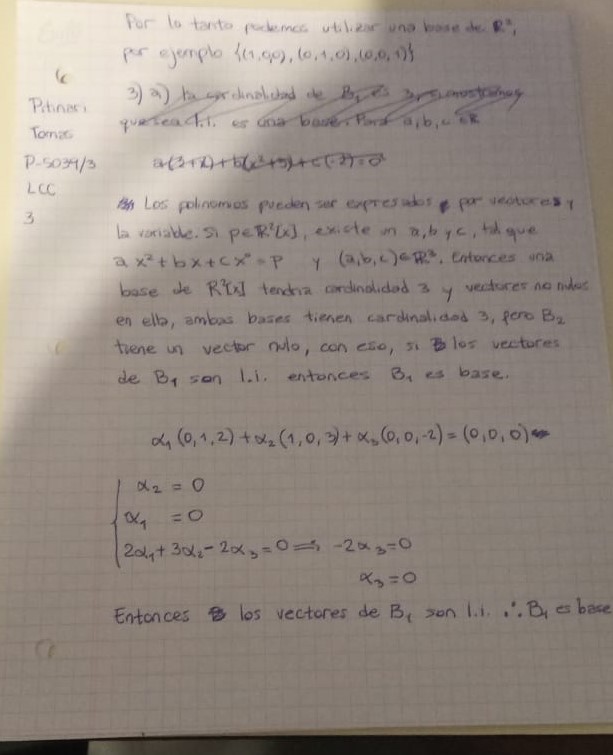 Por lo tanto podemos utilizar una base de ℝ³,
por ejemplo {(1,0,0), (0,1,0), (0,0,1)}
3) a) La cardinalidad de B₁ es 3, si mostramos
que sea l.i. es una base. Para a,b,c ∈ ℝ
Tomas
P-5039/3
LCC
3
Los polinomios pueden ser expresados por vectores y
la variable. Si p∈ℝ²[x], existe un a, b y c, tal que
a x² + b x + c x⁰ = p y (a,b,c)∈ℝ³. Entonces una
base de ℝ²[x] tendria cardinalidad 3 y vectores no nulos
en ella, ambas bases tienen cardinalidad 3, pero B₂
tiene un vector nulo, con eso, si los vectores
de B₁ son l.i. entonces B₁ es base.
α₁(0,1,2)+α₂(1,0,3)+α₃(0,0,-2)=(0,0,0)
α₂ = 0
α₁ = 0
2α₁+3α₂-2α₃=0 ⟹ -2α₃=0
α₃=0
Entonces los vectores de B₁ son l.i. ∴ B₁ es base